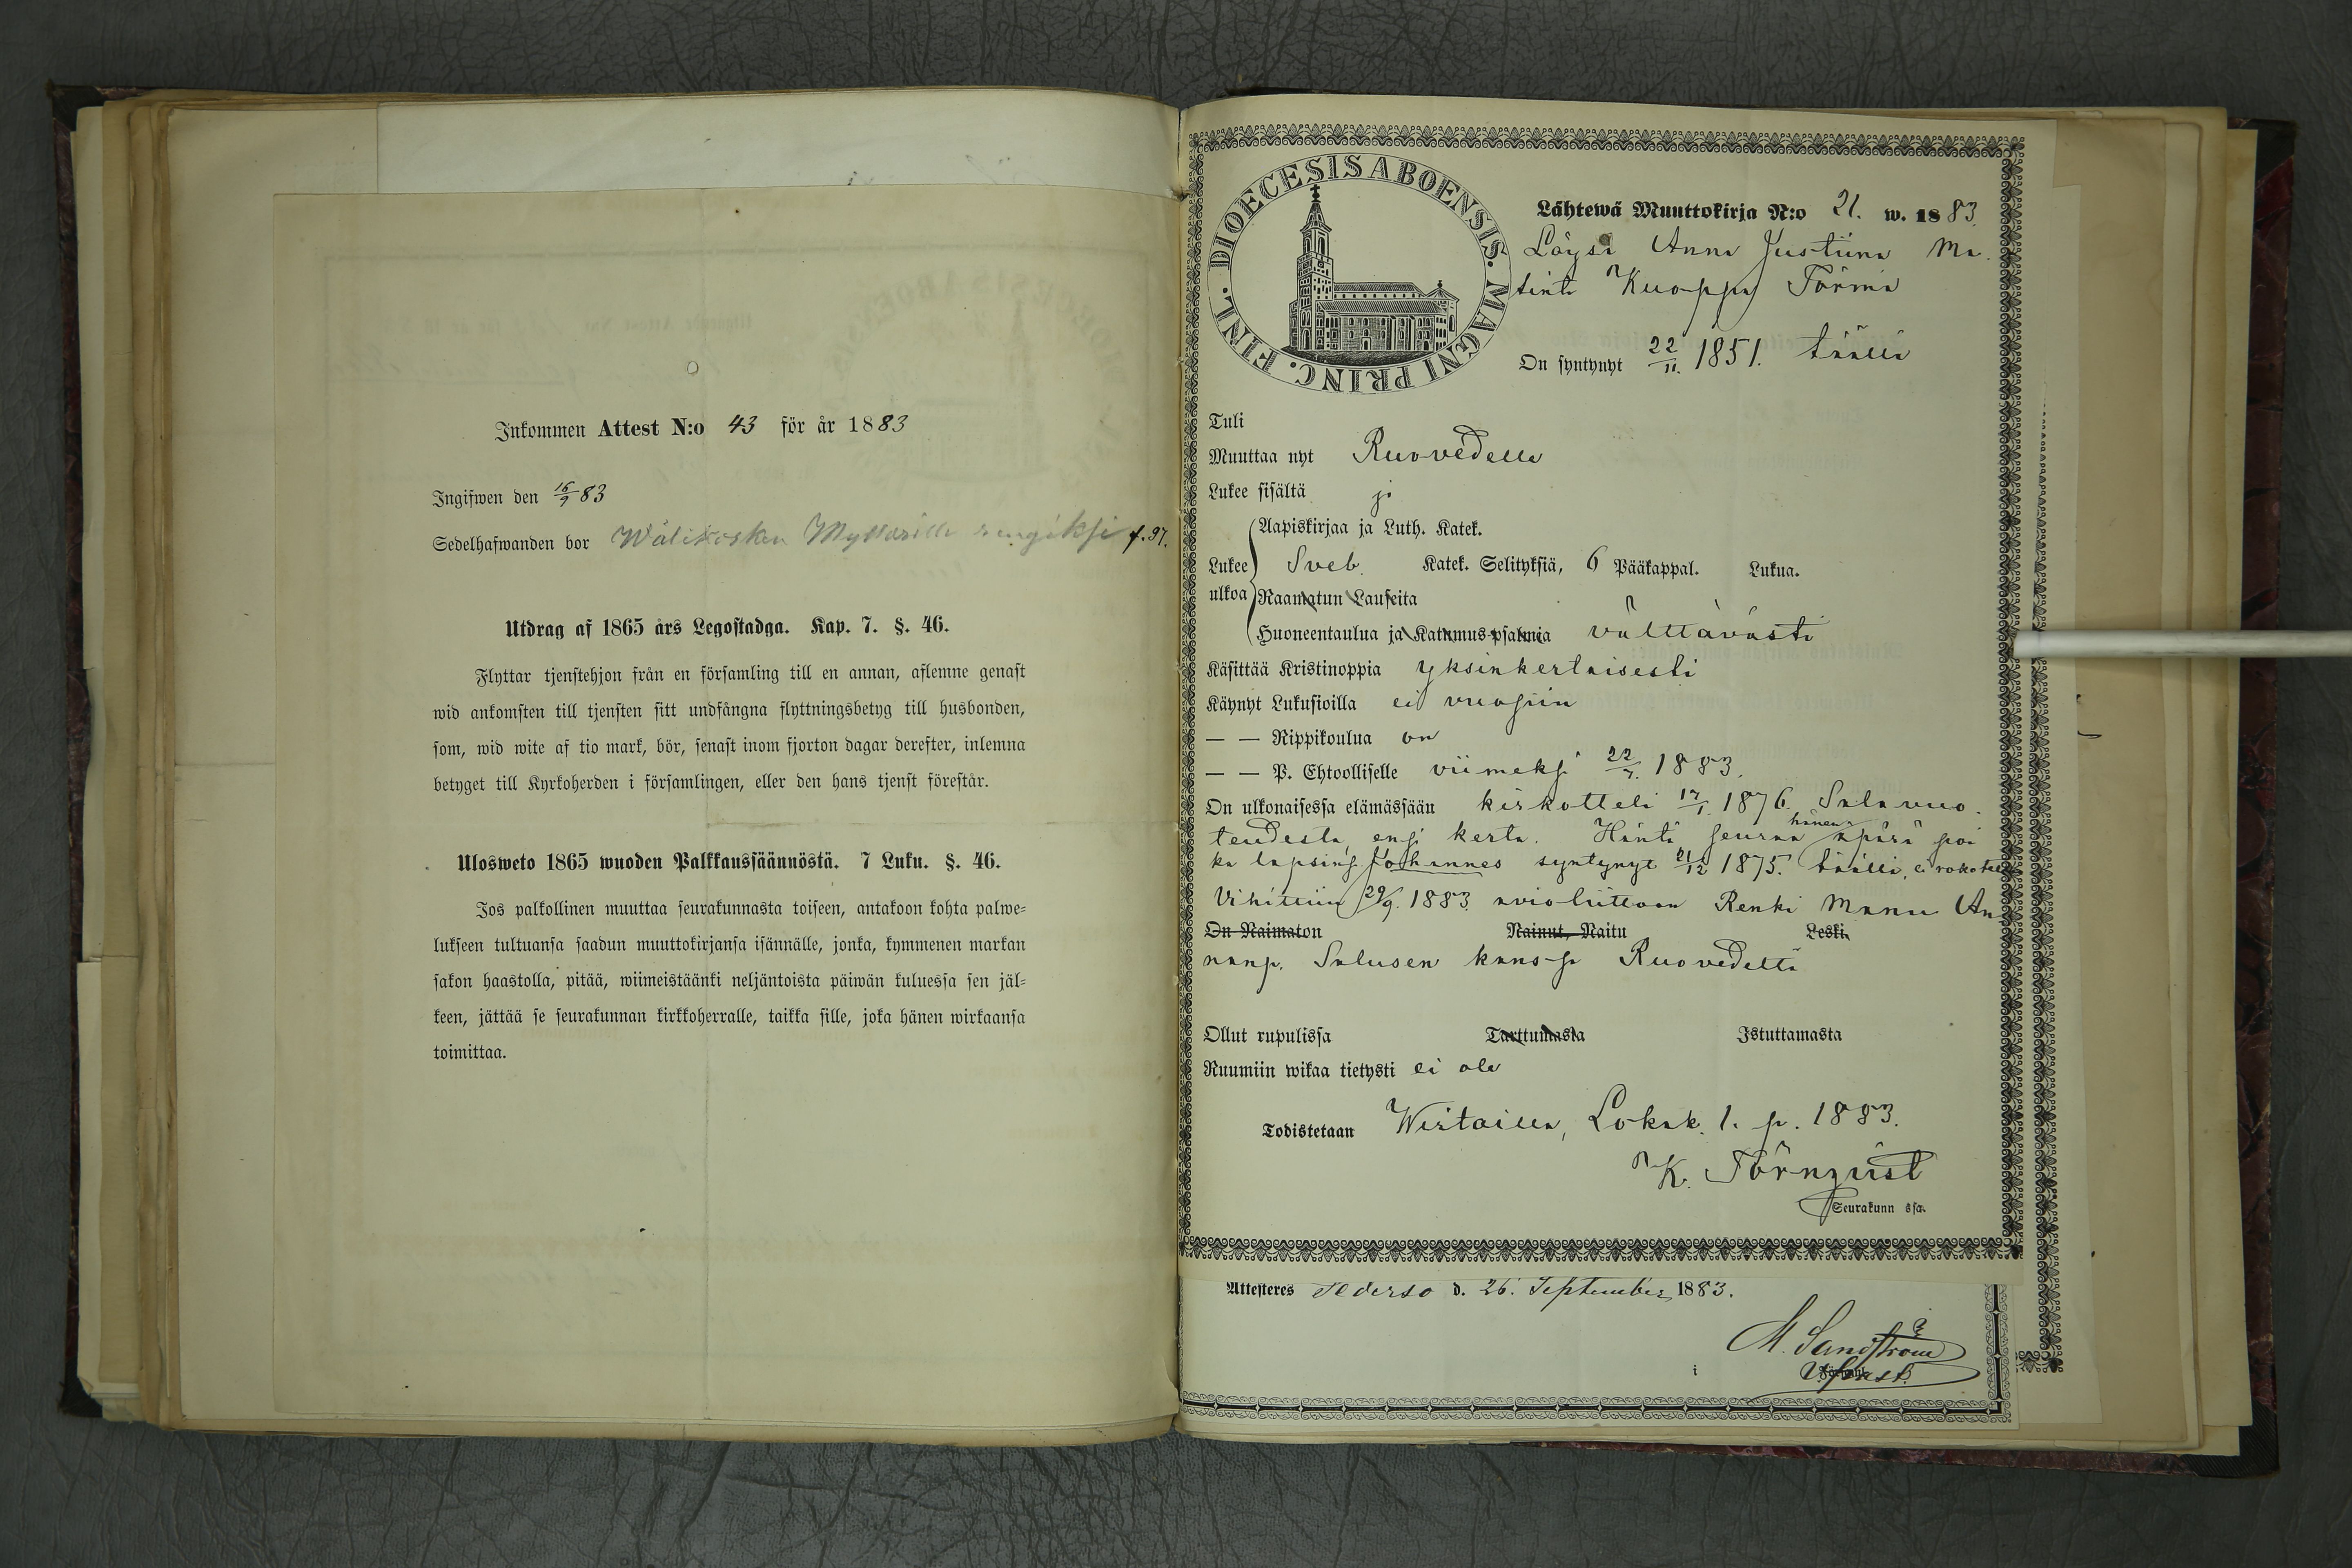 Inkommen Attest N:o 43 för år 1883
Ingifwen den 16/9 83
Sedelhafwanden bor Wälikosken Myllärille rengiksi f. 97.
Utdrag af 1865 års Legostadga. Kap. 7. §. 46.
Flyttar tjenstehjon från en församling till en annan, aflemne genast
wid ankomsten till tjensten sitt undfångna flyttningsbetyg till husbonden,
som, wid wite af tio mark, bör, senast inom fjorton dagar derefter, inlemna
betyget till Kyrkoherden i församlingen, eller den hans tjenst förestår.
Ulosweto 1865 wuoden Palkkaussäännöstä. 7 Luku. §. 46.
Jos palkollinen muuttaa seurakunnasta toiseen, antakoon kohta palwe=
lukseen tultuansa saadun muuttokirjansa isännälle, jonka, kymmenen markan
sakon haastolla, pitää, wiimeistäänki neljäntoista päiwän kuluessa sen jäl=
keen, jättää se seurakunnan kirkkoherralle, taikka sille, joka hänen wirkaansa
toimittaa.
DIOECESIS ABOENSIS. MAGNI PRINC. FINL.
Lähtewä Muuttokirja N:o 21. w. 1883
Löysä Anna Justiina Ma
tint Kuoppa Törmä
On syntynyt 22/11. 1851. täällä
Tuli
Muuttaa nyt Ruovedelle
Lukee sisältä
Aapiskirjaa ja Luth. Katek.
Lukee ulkoa Sveb. Katek. Selityksiä, 6 Pääkappal. Lukua.
Raamatun Lauseita
Huoneentaulua ja Katumus-psalmia välttävästi
Käsittää Kristinoppia yksinkertaisesti
Käynyt Lukusioilla ei vuosiin
— — Rippikoulua on
— — P. Ehtoolliselle viimeksi 22/7. 1883.
On ulkonaisessa elämässään kirkotteli 17/1. 1876. Salavuo
teudesta, ensi kerta. Häntä seuraa hänen äpärä poi
ka lapsensa Johannes syntynyt 21/12 1875. täällä, ei rokotettu
Vihittiin 29/9. 1883. avioliittoon Renki Manu An
On Naimaton Nainut, Naitu Leski.
nanp. Salusen kanssa Ruovedeltä
Ollut rupulissa Tarttumasta Istuttamasta
Ruumiin wikaa tietysti ei ole
Todistetaan Wirtailla, Lokak. 1. p. 1883.
K. Törnqvist
Seurakunn ssa.
Attesteres Pederso d. 26. September 1883.
M. Sandström
i